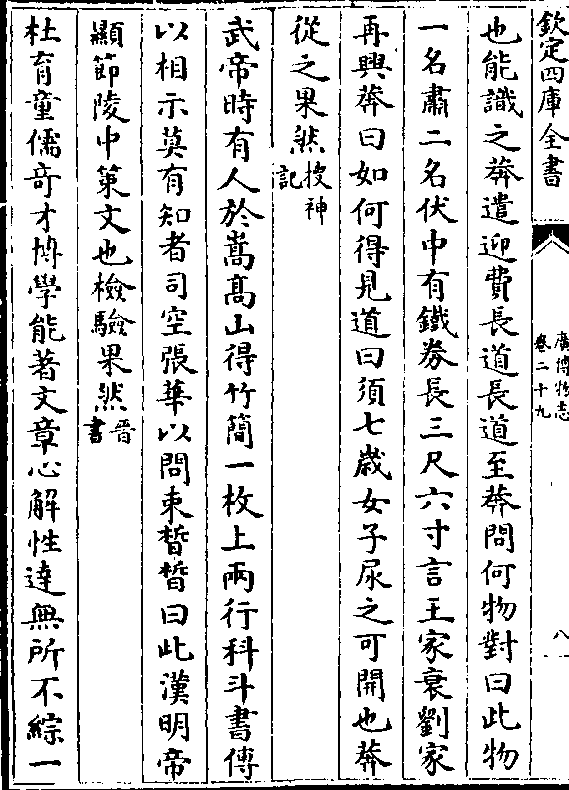 欽定四庫全書
廣博物志
卷二十九
八
也能識之莽遣迎費長道長道至莽問何物對曰此物
一名肅二名伏中有鐵券長三尺六寸言王家衰劉家
再興莽曰如何得見道曰須七歲女子尿之可開也莽
從之果然搜神記
武帝時有人於嵩髙山得竹簡一枚上兩行科斗書傳
以相示莫有知者司空張華以問束晳晳曰此漢明帝
顯節陵中策文也檢驗果然晉書
杜育童儒竒才博學能著文章心解性達無所不綜一